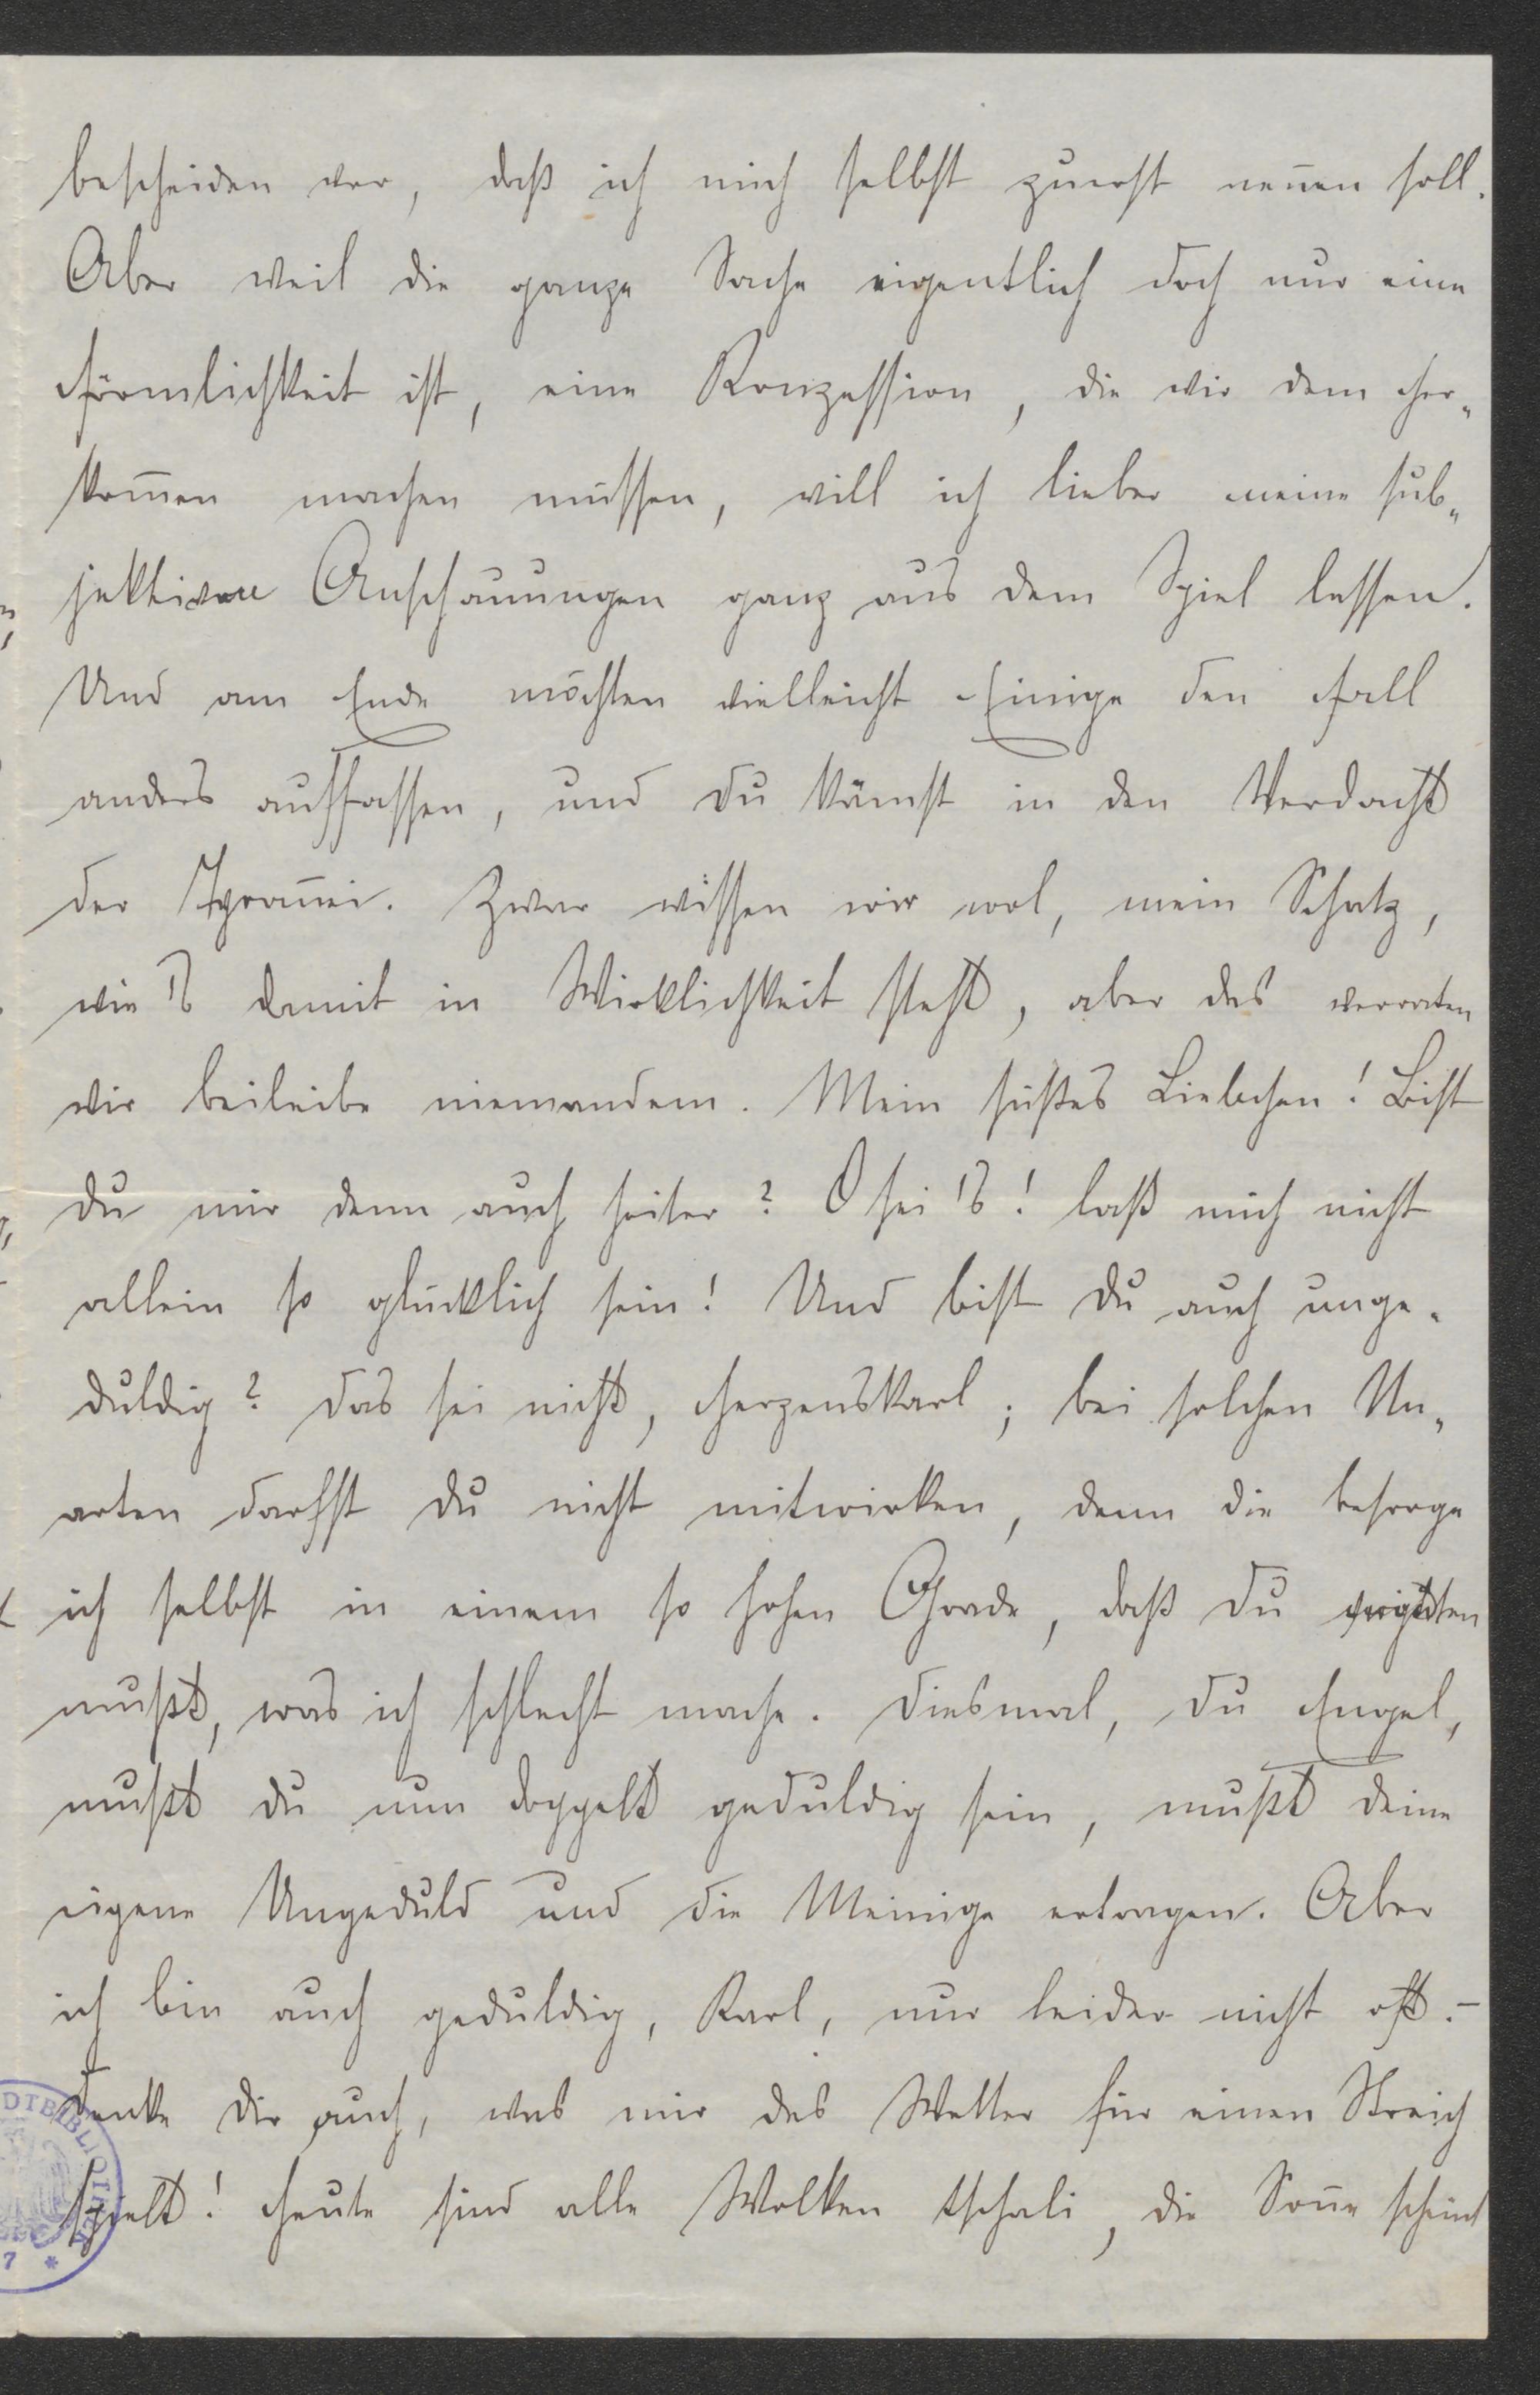 bescheiden vor, daß ich mich selbst zuerst neñen soll.
Aber weil die ganze Sache eigentlich doch nur eine
Förmlichkeit ist, eine Konzession, die wir dem Her„
kom̃en machen müssen, will ich lieber meine sub„
jektiven Anschauungen ganz aus dem Spiel lassen.
Und am Ende möchten vielleicht Einige den Fall
anders auffassen, und du kämst in den Verdacht
der Tyrañei. Zwar wissen wir wol, mein Schatz,
wie's damit in Wirklichkeit steht, aber das verraten
wir beileibe niemandem. Mein süßes Liebchen! Bist
du mir denn auch heiter? O sei's! laß mich nicht
allein so glücklich sein! Und bist du auch unge„
duldig? Das sei nicht, Herzenskarl; bei solchen Un„
arten darfst du nicht mitwirken, denn die besorge
ich selbst in einem so hohen Grade, daß du
mußt, was ich schlecht mache. Diesmal, du Engel,
mußt du nun doppelt geduldig sein, mußt deine
eigene Ungeduld und die Meinige ertragen. Aber
ich bin auch geduldig, Karl, nur leider nicht oft.–
Denke dir auch, was mir das Wetter für einen Streich
spielt! Heute sind alle Wolken tschali, die Soñe scheint